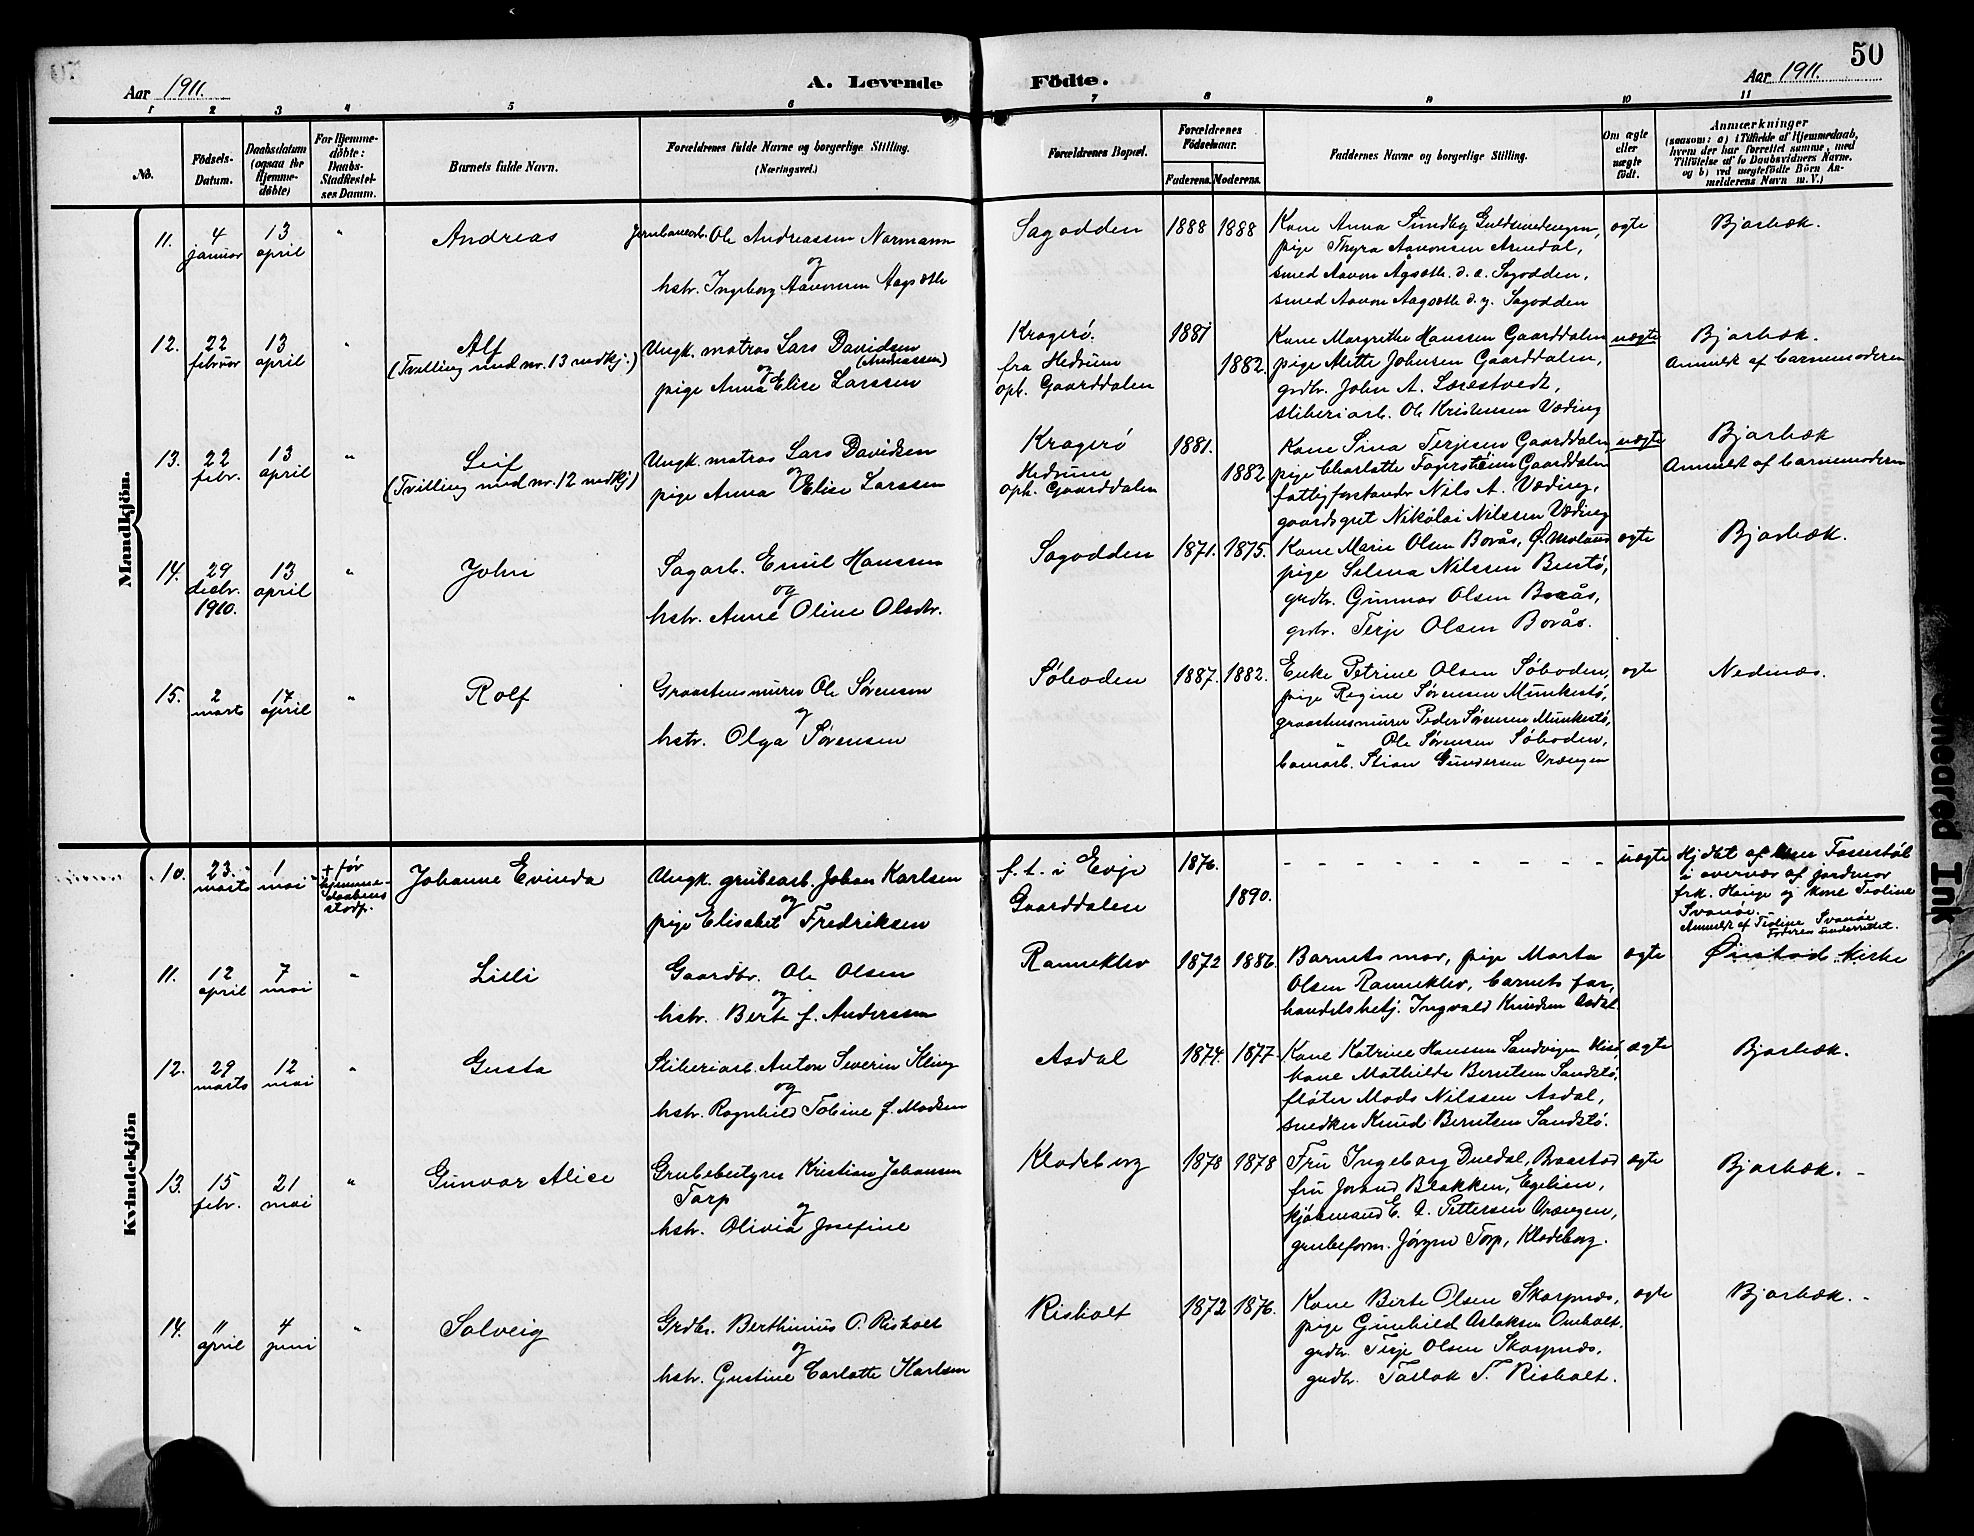 50
Aar 1911.
A. Levende
Födte.
Aar 1911.
1 2 3 4 5 6 7 8 9 10 11
No.
Födsels-
Datum.
Daabsdatum
(ogsaa for
Hjemme-
döbte)
For Hjemme-
döbte:
Daabs-
Stadfæstel-
ses Datum.
Barnets fulde Navn.
Forældrenes fulde Navne og borgerlige Stilling.
(Næringsvei.)
Forældrenes Bopæl.
Forældrenes
Födselsaar.
Faderens. Moderens.
Faddernes Navne og borgerlige Stilling.
Om ægte
eller
uægte
födt.
Anmærkninger
(saasom: a) i Tilfælde af Hjemmedaab,
hvem der har forrettet samme, med
Tilföielse af to Daabsvidners Navne,
og b) ved uægtefödte Börn An-
melderens Navn m. V.)
Mandkjön.
11.
4
januar
13
april
"
Andreas
Jernbanearb. Ole Andreassen Normann
og
hstr. Ingeborg Aavonsen Aagsæth
Sagodden
1888 1888
Kone Anna Sundby Guldsmedengen,
pige Thyra Aavonsen Arendal,
smed Aavon Agsæth d. æ. Sagodden,
smed Aavon Aagsæth d. y. Sagodden
ægte
Bjorbæk.
12.
22
februar
13
april
"
Alf
(Tvilling med nr. 13 mdkj.)
Ungk. matros Lars Davidsen
(Andreassen)
og
pige Anna Elise Larssen
Kragerø.
fra Hedrum
oph. Gaarddalen
1881
1882.
Kone Margrethe Hanssen Gaarddalen
pige Mette Johnsen Gaarddalen,
grdbr. John A. Lærestvedt,
sliberiarb. Ole Kristensen Væding
uægte
Bjorbæk.
Anmeldt af barnemoderen
13.
22
febr.
13
april
"
Leif
(Tvilling med nr. 12 mdkj)
Ungk. matros Lars Davidsen
og
pige Anna Elise Larssen
Kragerø
Hedrum
oph. Gaarddalen
1881.
1882
Kone Sina Terjesen Gaarddalen,
pige Charlotte Fagerstrøm Gaarddalen
fattigforstander Nils A. Væding,
gaardsgut Nikolai Nilssen Væding
uægte
Bjorbæk
Anmeldt af barnemoderen
14.
29
decbr.
1910.
13
april
"
John
Sagarb. Emil Hanssen
og
hstr. Anne Oline Olsdtr.
Sagodden
1871. 1875.
Kone Marie Olsen Borås, Ø. Moland
pige Selma Nilssen Bustø,
grdbr. Gunnar Olsen Borås,
grdbr. Terje Olsen Borås.
ægte
Bjorbæk.
15.
2
marts
17
april
"
Rolf
Graastensmurer Ole Sørensen
og
hstr. Olga Sørensen
Søboden
1887. 1882.
Enke Petrine Olsen Søboden,
pige Regine Sørensen Munkestø,
graastensmurer Peder Sørensen Munkestø,
" Ole Sørensen Søboden,
bomarb. Stian Gundersen Vrængen
ægte
Nedenæs.
Kvindekjön
10.
23
marts
1
mai
+ før
hjemme-
daabens
stadf.
Johanne Evinda
Ungk. grubearb. Johan Karlsen
og
pige Elisabet Fredriksen
f. t. i Evje
Gaarddalen
1876.
1890.
- - - - - - - - - -
uægte
Hjdbt af Fosserstøl
i overvær af jordmor
frk. Hauge og kone Teoline
Svanøe.
Anmeldt af Teoline Svanøe
Faderen underrettet.
11.
12
april
7
mai
"
Lilli
Gaardbr. Ole Olsen
og
hstr. Berte f. Anderssen
Ranneklev
1872 1886.
Barnets mor, pige Marta
Olsen Ranneklev, barnets far,
handelsbetj. Ingvald Knudsen Asdal.
ægte
Øiestad kirke
12.
29
marts
12
mai
"
Gusta
Sliberiarb. Anton Severin Kling
og
hstr. Ragnhild Tobine f. Madsen
Asdal
1874. 1877.
Kone Katrine Hanssen Sandvigen Hisø,
kone Mathilde Berntsen Sandstø,
fløter Mads Nilssen Asdal,
snedker Knud Berntsen Sandstø.
ægte
Bjorbæk.
13.
15
febr.
21
mai
"
Gunvor Alice
Grubebestyrer Kristian Johansen
Torp
og
hstr. Olivia Josefine
Klodeborg
1878 1878
Fru Ingeborg Duedal, Braastad
fru Jorand Blakken, Egelien,
kjøbmand E. A. Pettersen Vrængen,
grubeform. Jørgen Torp, Klodeborg.
ægte
Bjorbæk. -
14.
11
april
4
juni
"
Solveig
Grdbr. Berthinius O. Risholt
og
hstr. Gustine Carlotte Karlsen
Risholt
1872 1876.
Kone Birte Olsen Skarpnæs,
pige Gunhild Aslaksen Omholt.
grdbr. Terje Olsen Skarpnæs,
grdbr. Taslak T. Risholt.
ægte
Bjorbæk. -
Smeared Ink